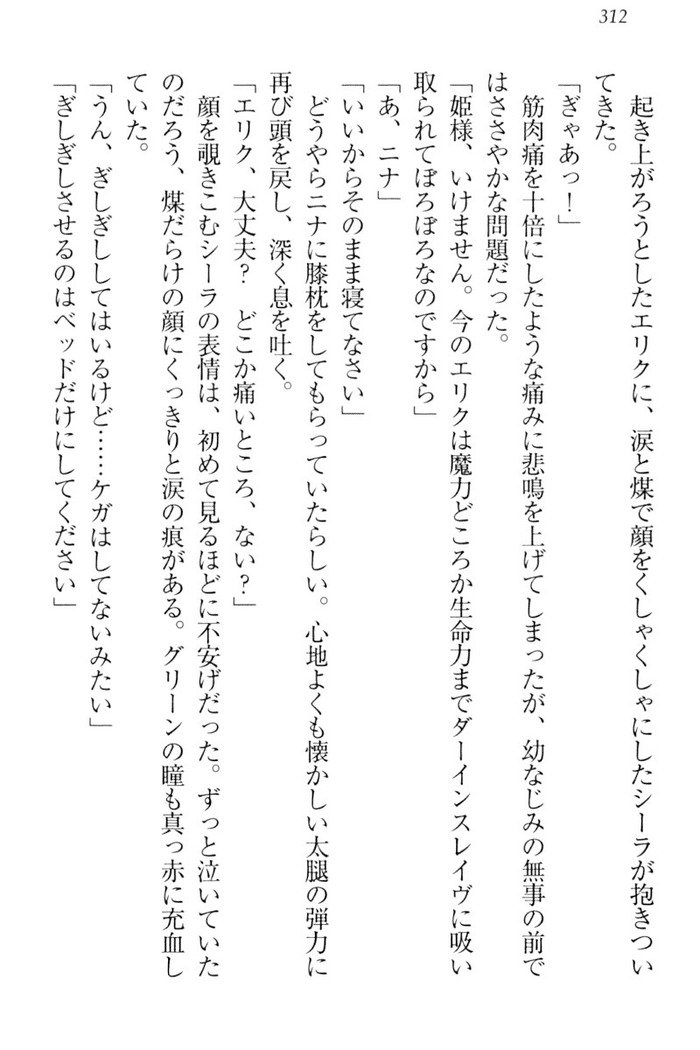 312
　起き上がろうとしたエリクに、涙と煤で顔をくしゃくしゃにしたシーラが抱きつい
てきた。
「ぎゃあっ！」
　筋肉痛を十倍にしたような痛みに悲鳴を上げてしまったが、幼なじみの無事の前で
はささやかな問題だった。
「姫様、いけません。今のエリクは魔力どころか生命力までダーインスレイヴに吸い
取られてぼろぼろなのですから」
「あ、ニナ」
「いいからそのまま寝てなさい」
　どうやらニナに膝枕をしてもらっていたらしい。心地よくも懐かしい太腿の弾力に
再び頭を戻し、深く息を吐く。
「エリク、大丈夫？　どこか痛いところ、ない？」
　顔を覗きこむシーラの表情は、初めて見るほどに不安げだった。ずっと泣いていた
のだろう、煤だらけの顔にくっきりと涙の痕がある。グリーンの瞳も真っ赤に充血し
ていた。
「うん、ぎしぎししてはいるけど……ケガはしてないみたい」
「ぎしぎしさせるのはベッドだけにしてください」